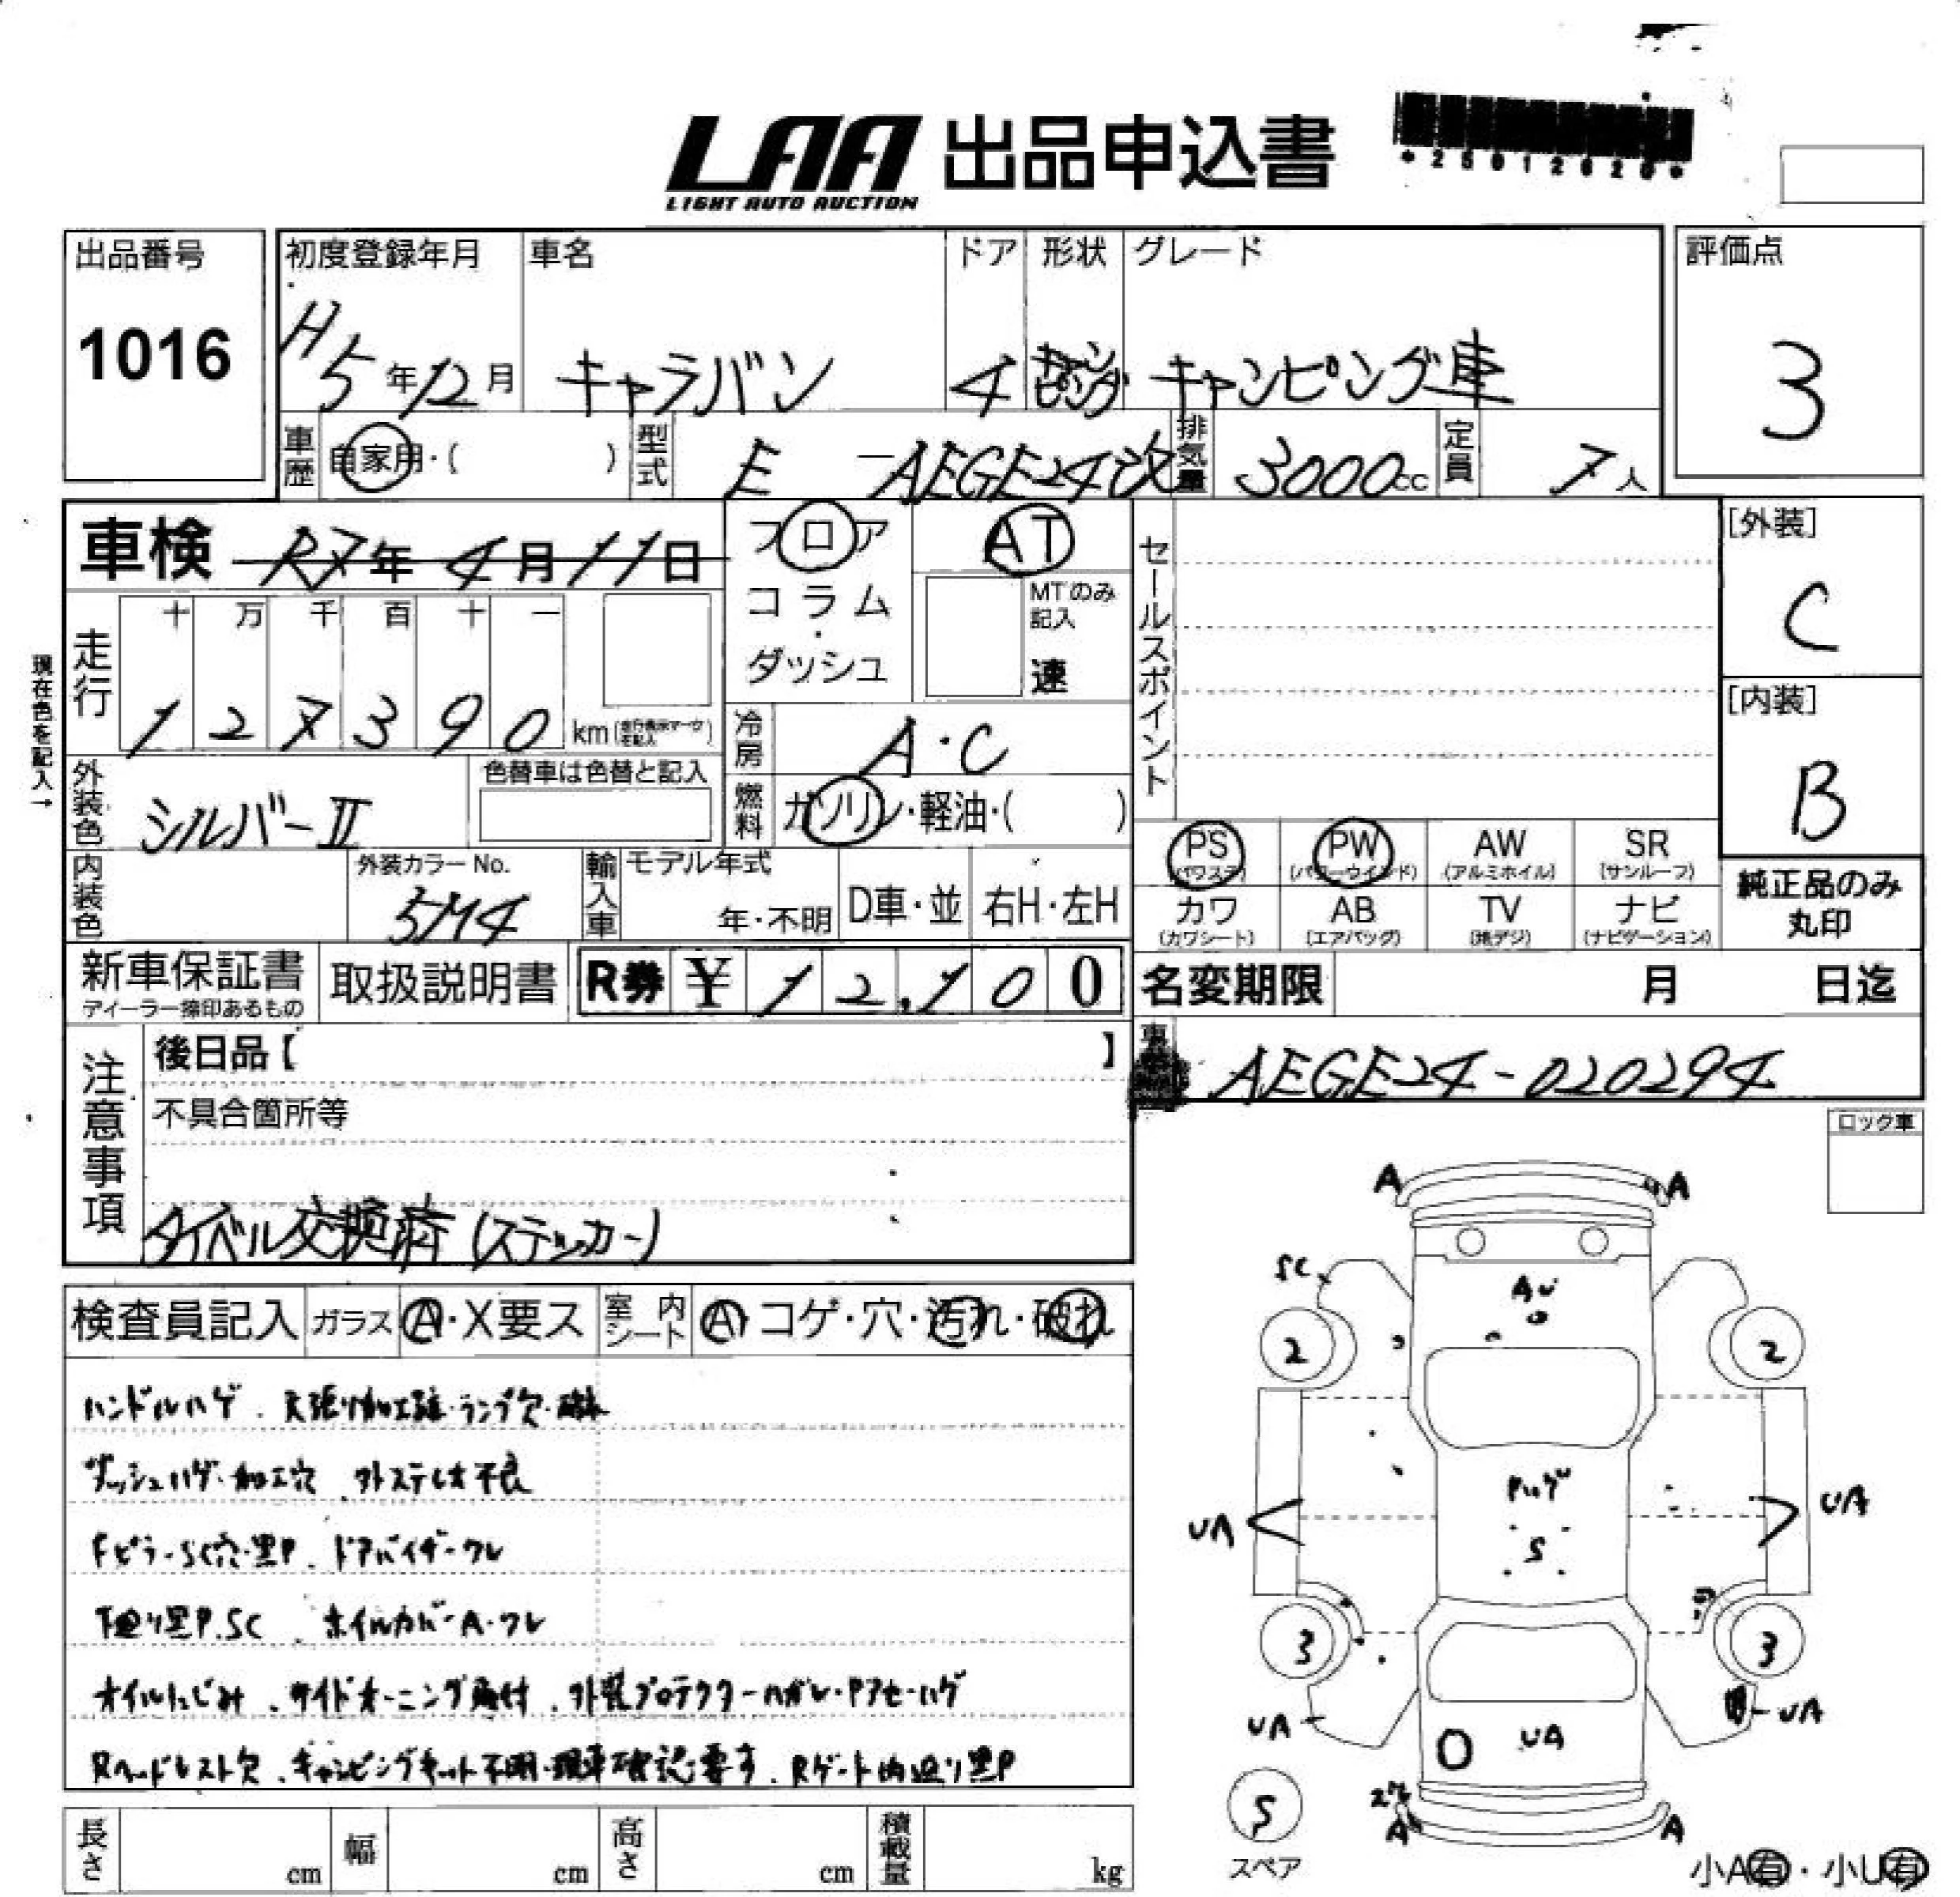 LAA 出品申込書
LIGHT AUTO AUCTION
*25012620*
出品番号
1016
初度登録年月
H5年12月
車名
キャラバン
ドア
4
形状
キャンピング
グレード
キャンピング車
評価点
3
車歴
自家用・( )
型式
E-AEGE24改
排気量
3000cc
定員
7人
車検 R7年4月11日
フロア
コラム
・
ダッシュ
AT
MTのみ
記入
速
セールスポイント
[外装]
C
[内装]
B
現在色を記入→
走行
十 万 千 百 十 一
1 2 7 3 9 0 km
冷房
A・C
燃料
ガソリン・軽油・( )
外装色
シルバーII
色替車は色替と記入
内装色
外装カラーNo.
5M4
輸入車
モデル年式
年・不明
D車・並
右H・左H
PS
(パワステ)
PW
(パワーウインド)
AW
(アルミホイル)
SR
(サンルーフ)
カワ
(カワシート)
AB
(エアバッグ)
TV
(地デジ)
ナビ
(ナビゲーション)
純正品のみ
丸印
新車保証書
ディーラー捺印あるもの
取扱説明書
R券 ¥12,100
名変期限 月 日迄
AEGE24-020294
注意事項
後日品【 】
不具合箇所等
タイベル交換済(ステッカー)
ロック車
検査員記入
ガラス
A・X要ス
室内シート
A コゲ・穴・汚れ・破れ
ハンドルハゲ、天張り加工跡・ランプ欠・破れ
ダッシュハゲ・加工穴、外ステレオ不良
Fピラ-SC穴・黒P、ドアバイザーワレ
下廻り黒P.SC、ホイルカバーA・ワレ
オイルにじみ、サイドオーニング取付、外装プロテクターハガレ・Pアセ・ハゲ
Rヘッドレスト欠、キャンピングキット不明・現車確認要す、Rゲート内廻り黒P
A
A
SC
AU
2
2
Pハゲ
S
UA
UA
3
3
UA
UA
UA
A
A
S
スペア
長さ cm
幅 cm
高さ cm
積載量 kg
小A有・小U有